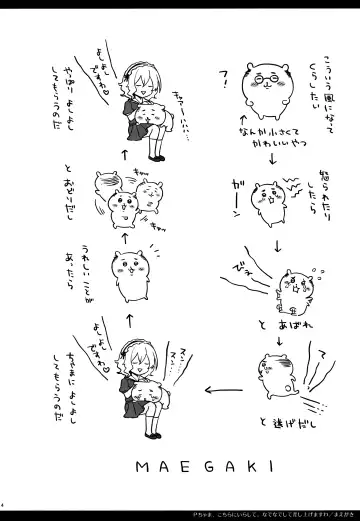 こういう風になって
くらしたい
フ!
なんか小さくて
かわいいやつ
怒られたり
したら
ガーン
びぇ
と あばれ
と 逃げだし
スン…
スン…
よしよし
ですわ♡
ちゃまによしよし
してもらうのだ
うれしいことが
あったら
キャッ
キャッ
キャッ
とおどりだし
よしよし
ですわ♡
キャアーハハハ…
やっぱりよしよし
してもらうのだ
MAEGAKI
Pちゃま、こちらにいらして。なでなでしてさし上げますわ/まえがき